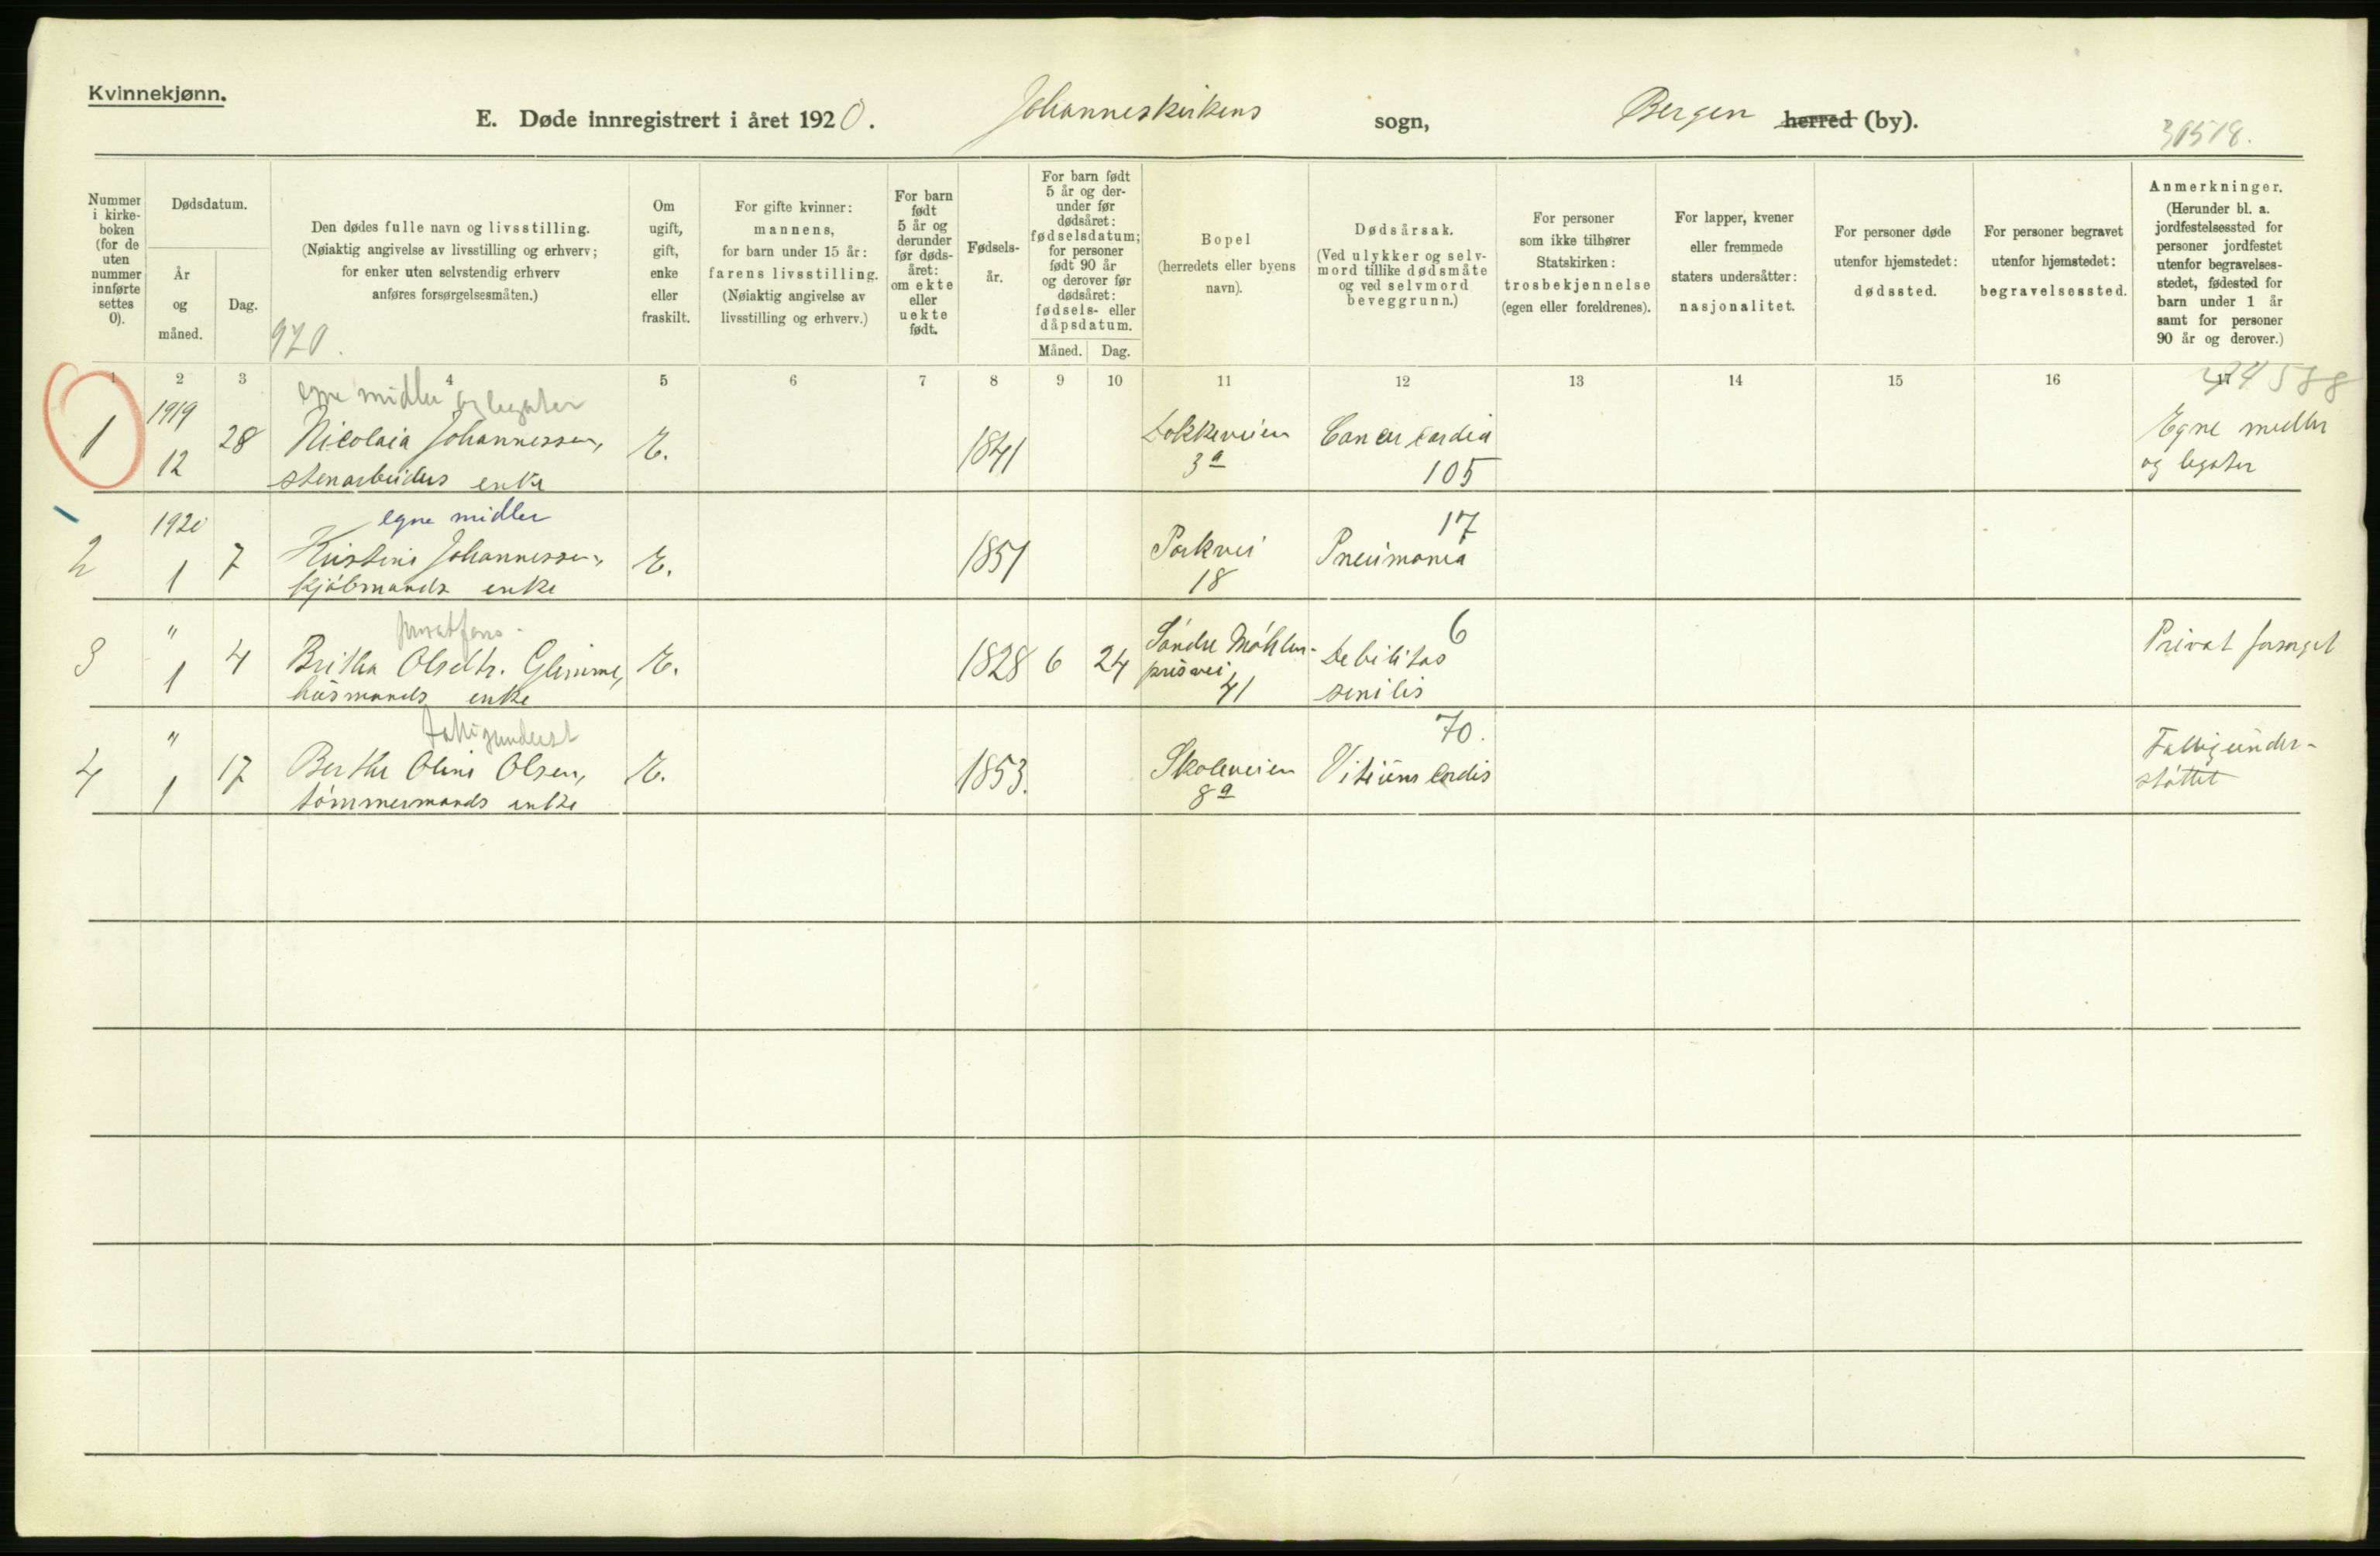 Kvinnekjønn.
E. Døde innregistrert i året 1920. Johanneskirkens sogn, Bergen herred (by).
Nummer i kirke-boken (for de uten nummer innførte settes 0).
Dødsdatum.
År og måned.
Dag.
Den dødes fulle navn og livsstilling.
(Nøiaktig angivelse av livsstilling og erhverv;
for enker uten selvstendig erhverv
anføres forsørgelsesmåten.)
920.
Om ugift, gift, enke eller fraskilt.
For gifte kvinner:
mannens,
for barn under 15 år:
farens livsstilling.
(Nøiaktig angivelse av
livsstilling og erhverv.)
For barn født 5 år og derunder før døds-året: om ekte eller uekte født.
Fødsels-år.
For barn født 5 år og der-under før dødsåret: fødselsdatum; for personer født 90 år og derover før dødsåret: fødsels- eller dåpsdatum.
Måned. Dag.
Bopel
(herredets eller byens
navn).
Dødsårsak.
(Ved ulykker og selv-
mord tillike dødsmåte
og ved selvmord
beveggrunn.)
For personer
som ikke tilhører
Statskirken:
trosbekjennelse
(egen eller foreldrenes).
For lapper, kvener
eller fremmede
staters undersåtter:
nasjonalitet.
For personer døde
utenfor hjemstedet:
dødssted.
For personer begravet
utenfor hjemstedet:
begravelsessted.
Anmerkninger.
(Herunder bl. a.
jordfestelsessted for
personer jordfestet
utenfor begravelses-
stedet, fødested for
barn under 1 år
samt for personer
90 år og derover.)
1 2 3 4 5 6 7 8 9 10 11 12 13 14 15 16 17
egne midler og legater
1 1919 12 28 Nicolaia Johannessen, E. 1841 Dokkeveien Cancer cardia Egne midler
stenarbeiders enke 3a 105 og legater
egne midler
2 1920 1 7 Kristine Johannessen, E. 1851 Parkvei 17 Pneumonia
kjøbmands enke 18
privat fors.
3 " 1 4 Britha Olsdtr. Glimme, E. 1828 6 24 Søndre Møhlen- 6 Debilitas Privat forsørget
husmands enke prisvei 41 senilis
Fattigunderst
4 " 1 17 Berthe Oline Olsen, E. 1853. Skoleveien 70. Vitium cordis Fattigunder-
tømmermands enke 8a støttet